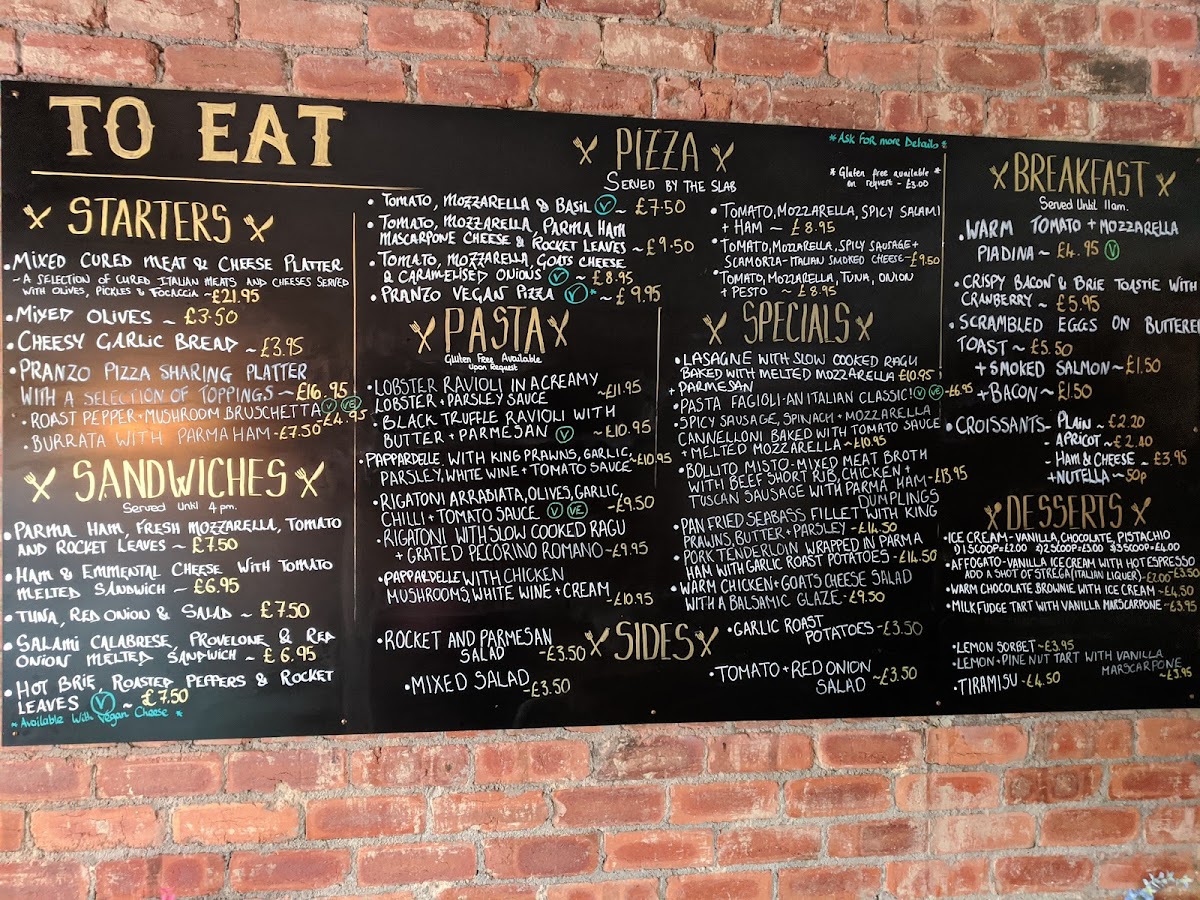 TO EAT
STARTERS
• MIXED CURED MEAT & CHEESE PLATTER
~ A SELECTION OF CURED ITALIAN MEATS AND CHEESES SERVED
WITH OLIVES, PICKLES & FOCACCIA ~ £21.95
• MIXED OLIVES ~ £3.50
• CHEESY GARLIC BREAD ~ £3.95
• PRANZO PIZZA SHARING PLATTER
WITH A SELECTION OF TOPPINGS ~ £16.95
• ROAST PEPPER + MUSHROOM BRUSCHETTA V VE - £4.95
• BURRATA WITH PARMA HAM - £7.50
SANDWICHES
Served Until 4pm.
• PARMA HAM, FRESH MOZZARELLA, TOMATO
AND ROCKET LEAVES ~ £7.50
• HAM & EMMENTAL CHEESE WITH TOMATO
MELTED SANDWICH ~ £6.95
• TUNA, RED ONION & SALAD ~ £7.50
• SALAMI CALABRESE, PROVELONE & RED
ONION MELTED SANDWICH ~ £6.95
• HOT BRIE, ROASTED PEPPERS & ROCKET
LEAVES V ~ £7.50
* Available With Vegan Cheese *
PIZZA
SERVED BY THE SLAB
* Ask for more Details *
* Gluten free available *
on request - £3.00
• TOMATO, MOZZARELLA & BASIL V ~ £7.50
• TOMATO, MOZZARELLA, PARMA HAM
MASCARPONE CHEESE & ROCKET LEAVES ~ £9.50
• TOMATO, MOZZARELLA, GOATS CHEESE
& CARAMELISED ONIONS V ~ £8.95
• PRANZO VEGAN PIZZA V * ~ £9.95
• TOMATO, MOZZARELLA, SPICY SALAMI
+ HAM ~ £8.95
• TOMATO, MOZZARELLA, SPICY SAUSAGE +
SCAMORZA - ITALIAN SMOKED CHEESE - £9.50
• TOMATO, MOZZARELLA, TUNA, ONION
+ PESTO ~ £8.95
PASTA
Gluten Free Available
Upon Request
• LOBSTER RAVIOLI IN A CREAMY
LOBSTER + PARSLEY SAUCE ~ £11.95
• BLACK TRUFFLE RAVIOLI WITH
BUTTER + PARMESAN V ~ £10.95
• PAPPARDELLE WITH KING PRAWNS, GARLIC,
PARSLEY, WHITE WINE + TOMATO SAUCE ~ £10.95
• RIGATONI ARRABIATA, OLIVES, GARLIC,
CHILLI + TOMATO SAUCE V VE ~ £9.50
• RIGATONI WITH SLOW COOKED RAGU
+ GRATED PECORINO ROMANO - £9.95
• PAPPARDELLE WITH CHICKEN
MUSHROOMS, WHITE WINE + CREAM - £10.95
SPECIALS
• LASAGNE WITH SLOW COOKED RAGU
BAKED WITH MELTED MOZZARELLA £10.95
+ PARMESAN
• PASTA FAGIOLI - AN ITALIAN CLASSIC! V VE - £6.95
• SPICY SAUSAGE, SPINACH + MOZZARELLA
CANNELLONI BAKED WITH TOMATO SAUCE
+ MELTED MOZZARELLA ~ £10.95
• BOLLITO MISTO - MIXED MEAT BROTH
WITH BEEF SHORT RIB, CHICKEN +
TUSCAN SAUSAGE WITH PARMA HAM - £13.95
DUMPLINGS
• PAN FRIED SEABASS FILLET WITH KING
PRAWNS, BUTTER + PARSLEY - £14.50
• PORK TENDERLOIN WRAPPED IN PARMA
HAM WITH GARLIC ROAST POTATOES - £14.50
• WARM CHICKEN + GOATS CHEESE SALAD
WITH A BALSAMIC GLAZE - £9.50
SIDES
• ROCKET AND PARMESAN
SALAD - £3.50
• MIXED SALAD - £3.50
• GARLIC ROAST
POTATOES - £3.50
• TOMATO + RED ONION
SALAD ~ £3.50
BREAKFAST
Served Until 11am.
• WARM TOMATO + MOZZARELLA
PIADINA ~ £4.95 V
• CRISPY BACON & BRIE TOASTIE WITH
CRANBERRY ~ £5.95
• SCRAMBLED EGGS ON BUTTERED
TOAST ~ £5.50
+ SMOKED SALMON ~ £1.50
+ BACON ~ £1.50
• CROISSANTS - PLAIN ~ £2.20
- APRICOT ~ £2.40
- HAM & CHEESE ~ £3.95
+ NUTELLA ~ 50p
DESSERTS
• ICE CREAM - VANILLA, CHOCOLATE, PISTACHIO
1 SCOOP = £2.00 2 SCOOP = £3.00 3 SCOOP = £4.00
• AFFOGATO - VANILLA ICE CREAM WITH HOT ESPRESSO - £3.50
ADD A SHOT OF STREGA (ITALIAN LIQUER) - £2.00
• WARM CHOCOLATE BROWNIE WITH ICE CREAM ~ £4.50
• MILK FUDGE TART WITH VANILLA MARSCARPONE - £3.95
• LEMON SORBET ~ £3.95
• LEMON + PINE NUT TART WITH VANILLA
MARSCARPONE ~ £3.95
• TIRAMISU ~ £4.50